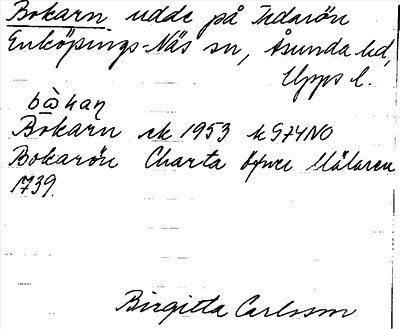 Bokarn udde på Tedarön
Enköpings-Näs sn, Åsunda hd,
Upps l.
Bokarn ek 1953 k 974NO
Bokarön Charta öfwer Mälaren
1739.
Birgitta Carlsson